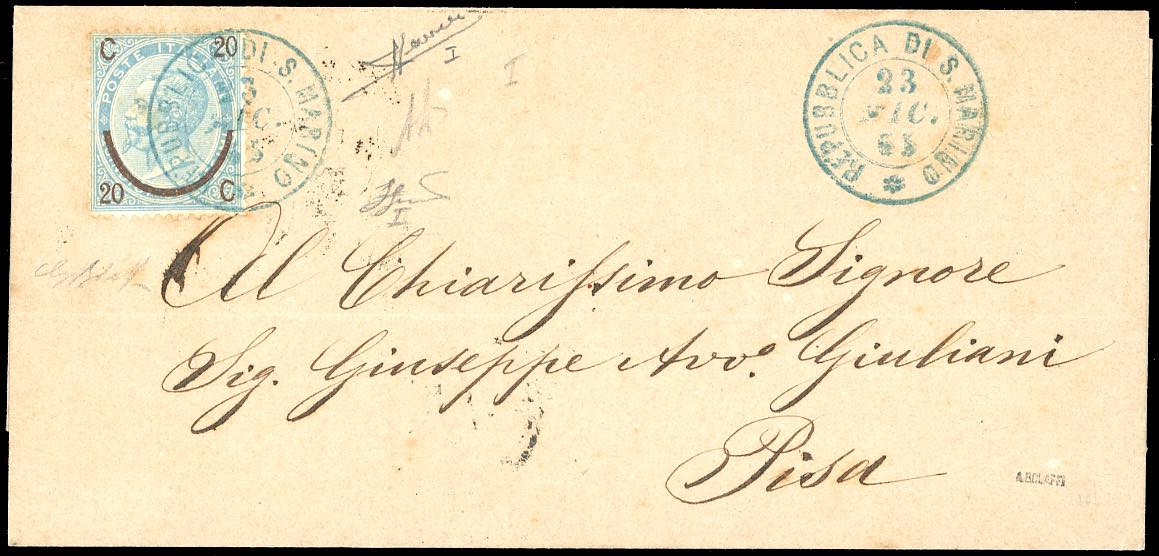 C 20
POSTE ITALIANE
20 C
REPUBBLICA DI S. MARINO
REPUBBLICA DI S. MARINO
23
DIC.
65
I
I
I
Al Chiarissimo Signore
Sig. Giuseppe Avvo. Giuliani
Pisa
A.BOLAFFI